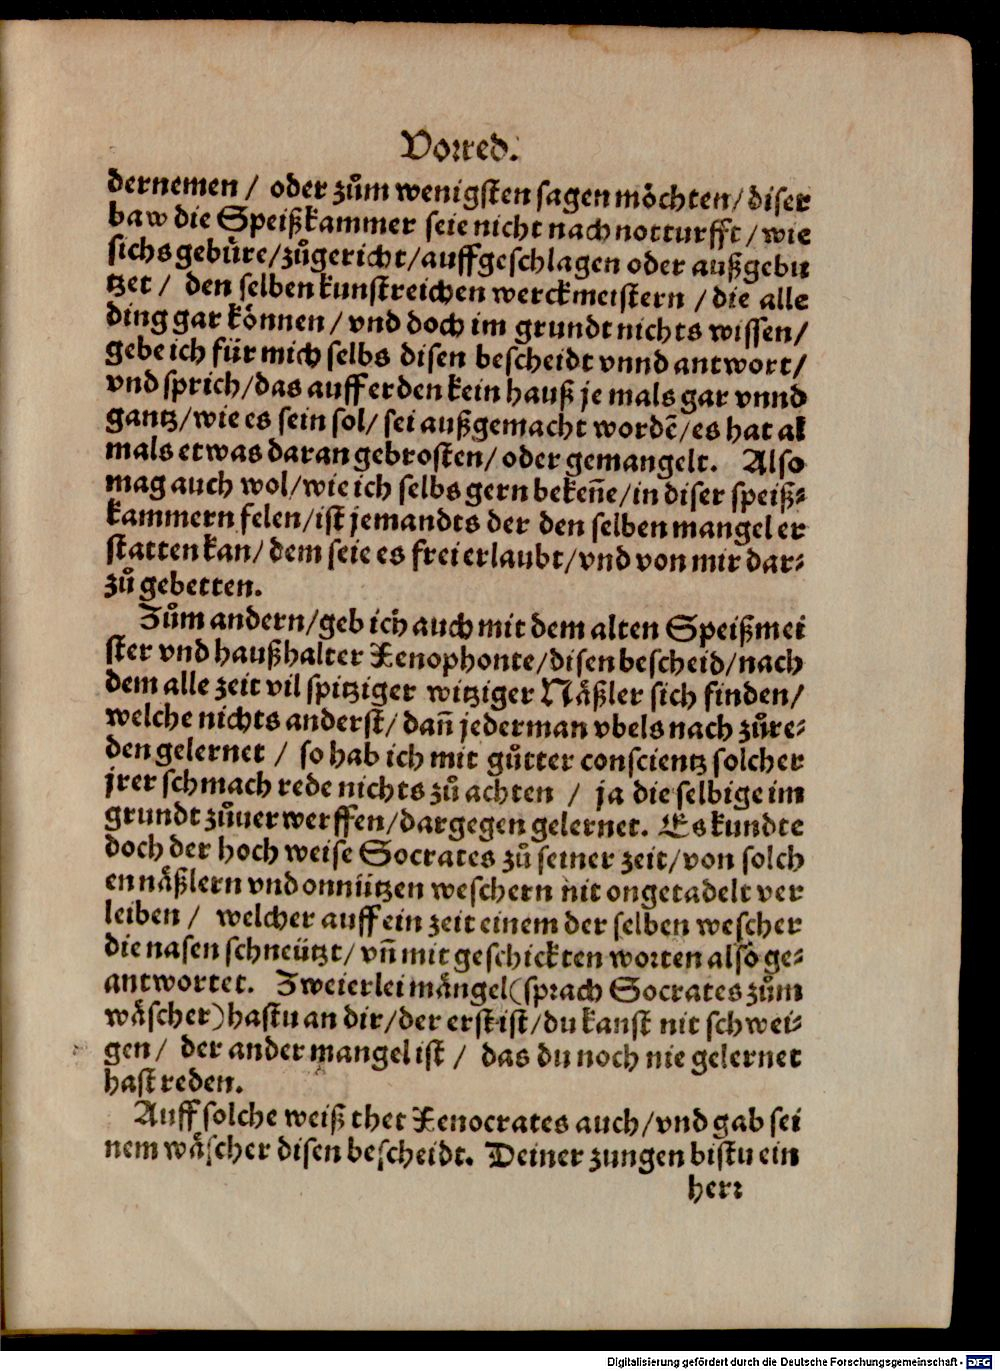 Vorred.
dernemen / oder zům wenigsten sagen möchten / diser
baw die Speißkammer seie nicht nach notturfft / wie
sichs gebüre / zůgericht / auffgeschlagen oder außgebu
tzet / den selben kunstreichen werckmeistern / die alle
ding gar können / vnd doch im grundt nichts wissen /
gebe ich für mich selbs disen bescheidt vnnd antwort /
vnd sprich / das auff erden kein hauß je mals gar vnnd
gantz / wie es sein sol / sei außgemacht wordē / es hat al
mals etwas daran gebrosten / oder gemangelt. Also
mag auch wol / wie ich selbs gern bekeñe / in diser speiß⸗
kammern felen / ist jemandts der den selben mangel er
statten kan / dem seie es frei erlaubt / vnd von mir dar⸗
zů gebetten.
Zům andern / geb ich auch mit dem alten Speißmei
ster vnd haußhalter Xenophonte / disen bescheid / nach
dem alle zeit vil spitziger witziger Näßler sich finden /
welche nichts anderst / dañ jederman vbels nach zůre⸗
den gelernet / so hab ich mit gůtter conscientz solcher
jrer schmach rede nichts zů achten / ja die selbige im
grundt zůuerwerffen / dargegen gelernet. Es kundte
doch der hoch weise Socrates zů seiner zeit / von solch
en näßlern vnd onnützen weschern nit ongetadelt ver
leiben / welcher auff ein zeit einem der selben wescher
die nasen schneützt / vñ mit geschickten worten also ge⸗
antwortet. Zweierlei mängel (sprach Socrates zům
wäscher) hastu an dir / der erst ist / du kanst nit schwei⸗
gen / der ander mangel ist / das du noch nie gelernet
hast reden.
Auff solche weiß thet Xenocrates auch / vnd gab sei
nem wäscher disen bescheidt. Deiner zungen bistu ein
herr
Digitalisierung gefördert durch die Deutsche Forschungsgemeinschaft - DFG